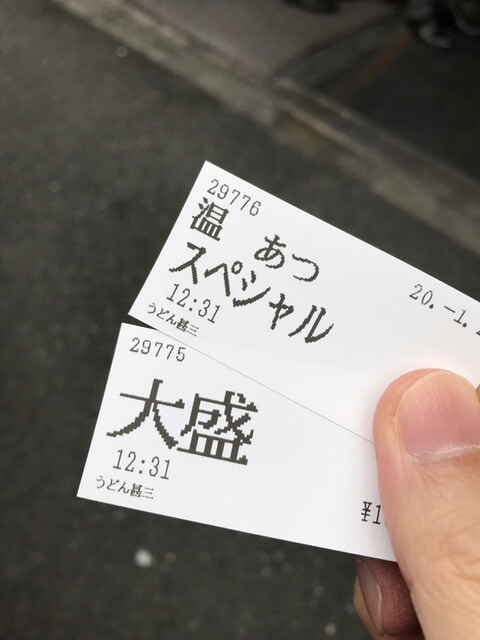 29776
温 あつ
スペシャル
20.-1.
12:31
うどん甚三
29775
大盛
12:31
うどん甚三
¥1